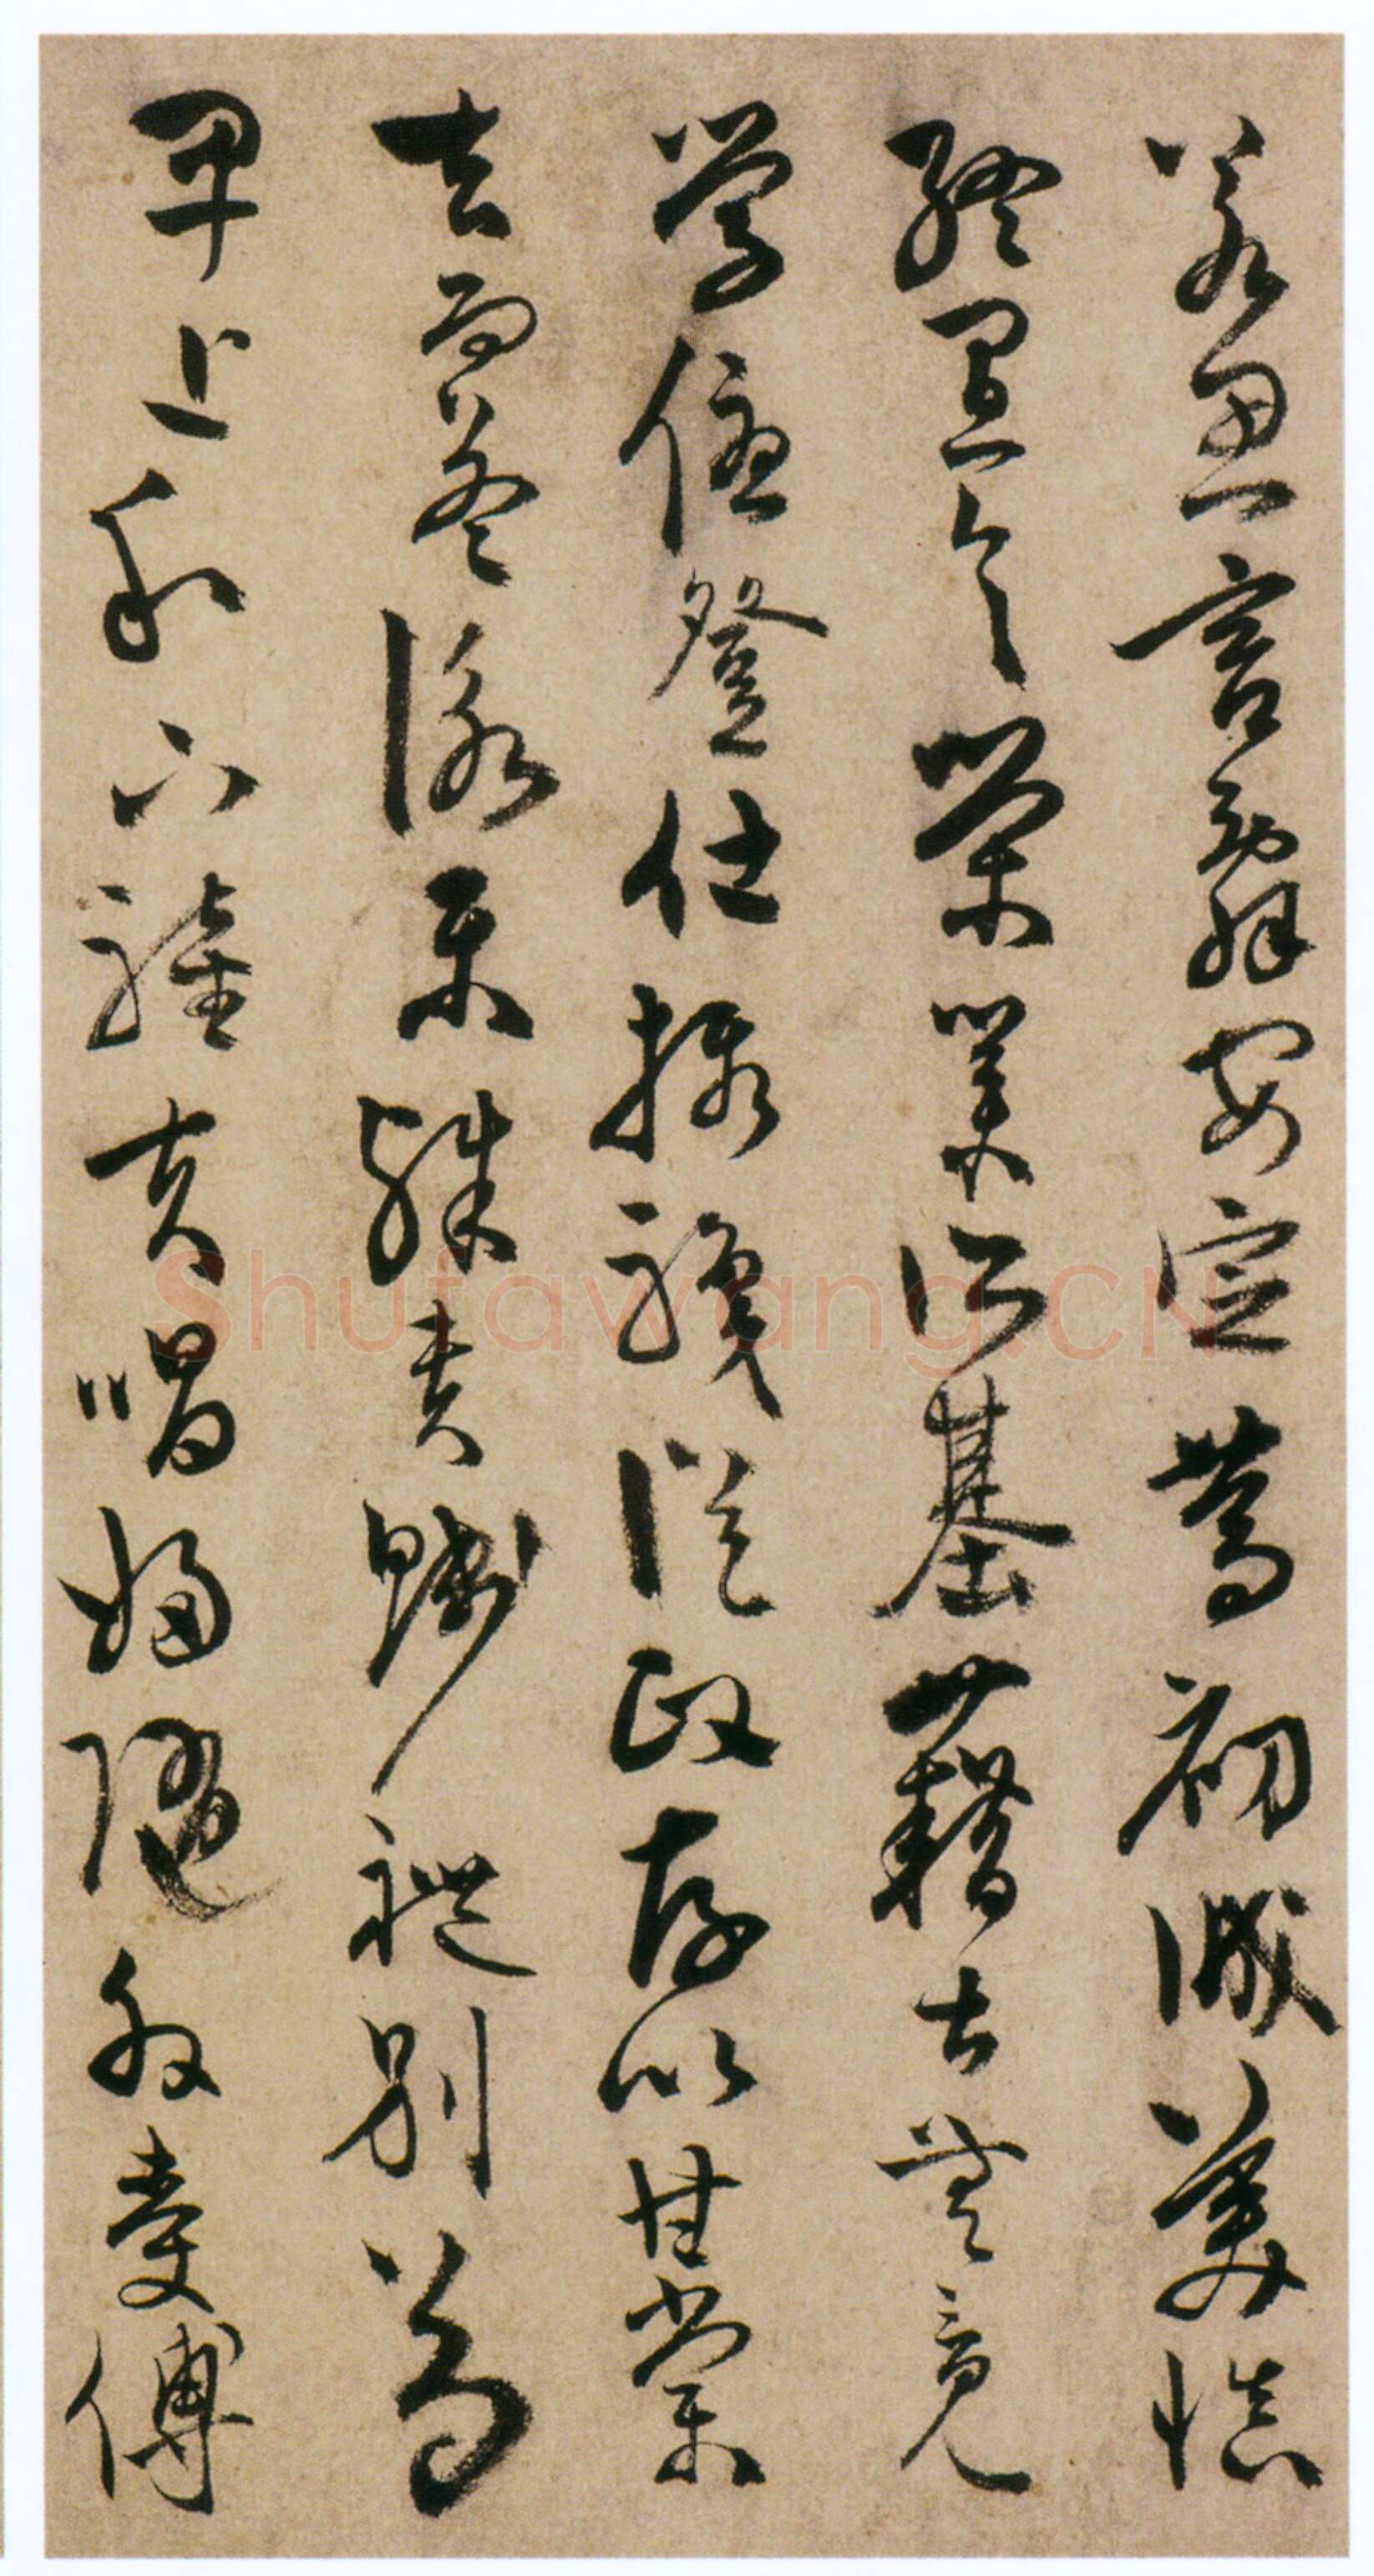 若思言辭安定篤初誠美慎
終宜令榮業所基藉甚無竟
學優登仕攝職從政存以甘棠
去而益詠樂殊貴賤禮別尊
卑上和下睦夫唱婦隨外受傅
Shufawang.CN